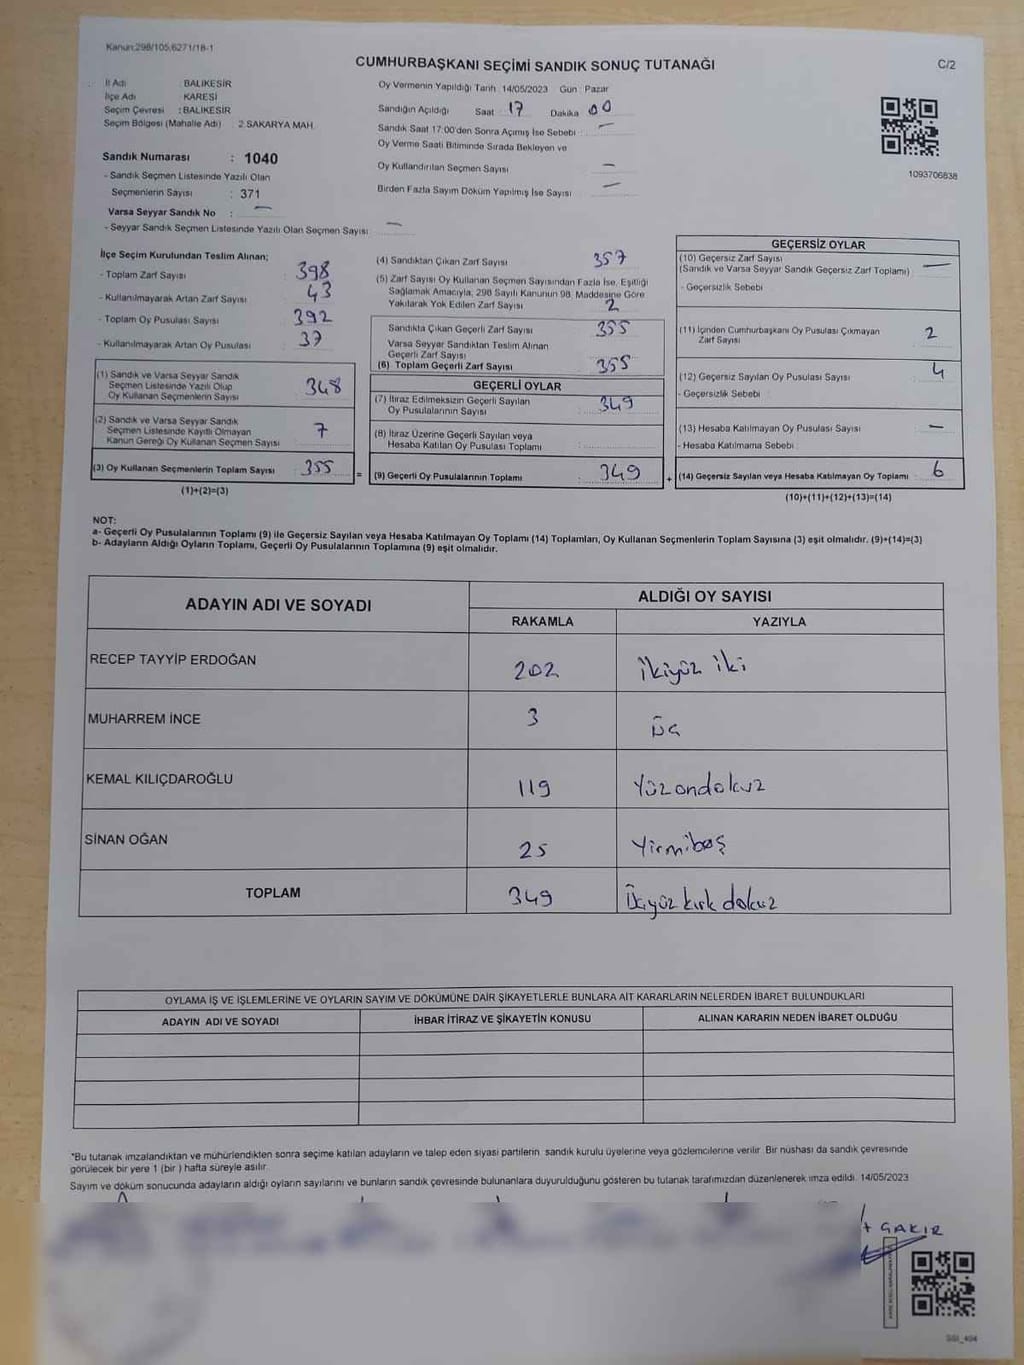 Kanun:298/105;6271/18-1
CUMHURBAŞKANI SEÇİMİ SANDIK SONUÇ TUTANAĞI
C/2
İl Adı : BALIKESİR
İlçe Adı : KARESİ
Seçim Çevresi : BALIKESİR
Seçim Bölgesi (Mahalle Adı) : 2.SAKARYA MAH.
Sandık Numarası : 1040
- Sandık Seçmen Listesinde Yazılı Olan
Seçmenlerin Sayısı : 371
Varsa Seyyar Sandık No : —
- Seyyar Sandık Seçmen Listesinde Yazılı Olan Seçmen Sayısı : —
Oy Vermenin Yapıldığı Tarih :14/05/2023 Gün : Pazar
Sandığın Açıldığı Saat : 17 Dakika : 00
Sandık Saat 17:00'den Sonra Açımış İse Sebebi : —
Oy Verme Saati Bitiminde Sırada Bekleyen ve
Oy Kullandırılan Seçmen Sayısı : —
Birden Fazla Sayım Döküm Yapılmış İse Sayısı : —
1093706838
İlçe Seçim Kurulundan Teslim Alınan;
- Toplam Zarf Sayısı : 398
- Kullanılmayarak Artan Zarf Sayısı : 43
- Toplam Oy Pusulası Sayısı : 392
- Kullanılmayarak Artan Oy Pusulası : 37
(1) Sandık ve Varsa Seyyar Sandık
Seçmen Listesinde Yazılı Olup
Oy Kullanan Seçmenlerin Sayısı : 348
(2) Sandık ve Varsa Seyyar Sandık
Seçmen Listesinde Kayıtlı Olmayan
Kanun Gereği Oy Kullanan Seçmen Sayısı : 7
(3) Oy Kullanan Seçmenlerin Toplam Sayısı : 355
(1)+(2)=(3)
=
(4) Sandıktan Çıkan Zarf Sayısı : 357
(5) Zarf Sayısı Oy Kullanan Seçmen Sayısından Fazla İse, Eşitliği
Sağlamak Amacıyla; 298 Sayılı Kanunun 98. Maddesine Göre
Yakılarak Yok Edilen Zarf Sayısı : 2
Sandıkta Çıkan Geçerli Zarf Sayısı : 355
Varsa Seyyar Sandıktan Teslim Alınan
Geçerli Zarf Sayısı :
(6) Toplam Geçerli Zarf Sayısı : 355
GEÇERLİ OYLAR
(7) İtiraz Edilmeksizin Geçerli Sayılan
Oy Pusulalarının Sayısı : 349
(8) İtiraz Üzerine Geçerli Sayılan veya
Hesaba Katılan Oy Pusulası Toplamı :
(9) Geçerli Oy Pusulalarının Toplamı : 349
+
GEÇERSİZ OYLAR
(10) Geçersiz Zarf Sayısı : —
(Sandık ve Varsa Seyyar Sandık Geçersiz Zarf Toplamı)
- Geçersizlik Sebebi :
(11) İçinden Cumhurbaşkanı Oy Pusulası Çıkmayan
Zarf Sayısı : 2
(12) Geçersiz Sayılan Oy Pusulası Sayısı : 4
- Geçersizlik Sebebi :
(13) Hesaba Katılmayan Oy Pusulası Sayısı : —
- Hesaba Katılmama Sebebi :
(14) Geçersiz Sayılan veya Hesaba Katılmayan Oy Toplamı : 6
(10)+(11)+(12)+(13)=(14)
NOT:
a- Geçerli Oy Pusulalarının Toplamı (9) ile Geçersiz Sayılan veya Hesaba Katılmayan Oy Toplamı (14) Toplamları, Oy Kullanan Seçmenlerin Toplam Sayısına (3) eşit olmalıdır. (9)+(14)=(3)
b- Adayların Aldığı Oyların Toplamı, Geçerli Oy Pusulalarının Toplamına (9) eşit olmalıdır.
ADAYIN ADI VE SOYADI ALDIĞI OY SAYISI
RAKAMLA YAZIYLA
RECEP TAYYİP ERDOĞAN 202 ikiyüz iki
MUHARREM İNCE 3 Üç
KEMAL KILIÇDAROĞLU 119 Yüzondokuz
SİNAN OĞAN 25 Yirmibeş
TOPLAM 349 Üçyüz kırk dokuz
OYLAMA İŞ VE İŞLEMLERİNE VE OYLARIN SAYIM VE DÖKÜMÜNE DAİR ŞİKAYETLERLE BUNLARA AİT KARARLARIN NELERDEN İBARET BULUNDUKLARI
ADAYIN ADI VE SOYADI İHBAR İTİRAZ VE ŞİKAYETİN KONUSU ALINAN KARARIN NEDEN İBARET OLDUĞU
*Bu tutanak imzalandıktan ve mühürlendikten sonra seçime katılan adayların ve talep eden siyasi partilerin sandık kurulu üyelerine veya gözlemcilerine verilir. Bir nüshası da sandık çevresinde
görülecek bir yere 1 (bir ) hafta süreyle asılır.
Sayım ve döküm sonucunda adayların aldığı oyların sayılarını ve bunların sandık çevresinde bulunanlara duyurulduğunu gösteren bu tutanak tarafımızdan düzenlenerek imza edildi. 14/05/2023
ÇAKIR
SSI_404